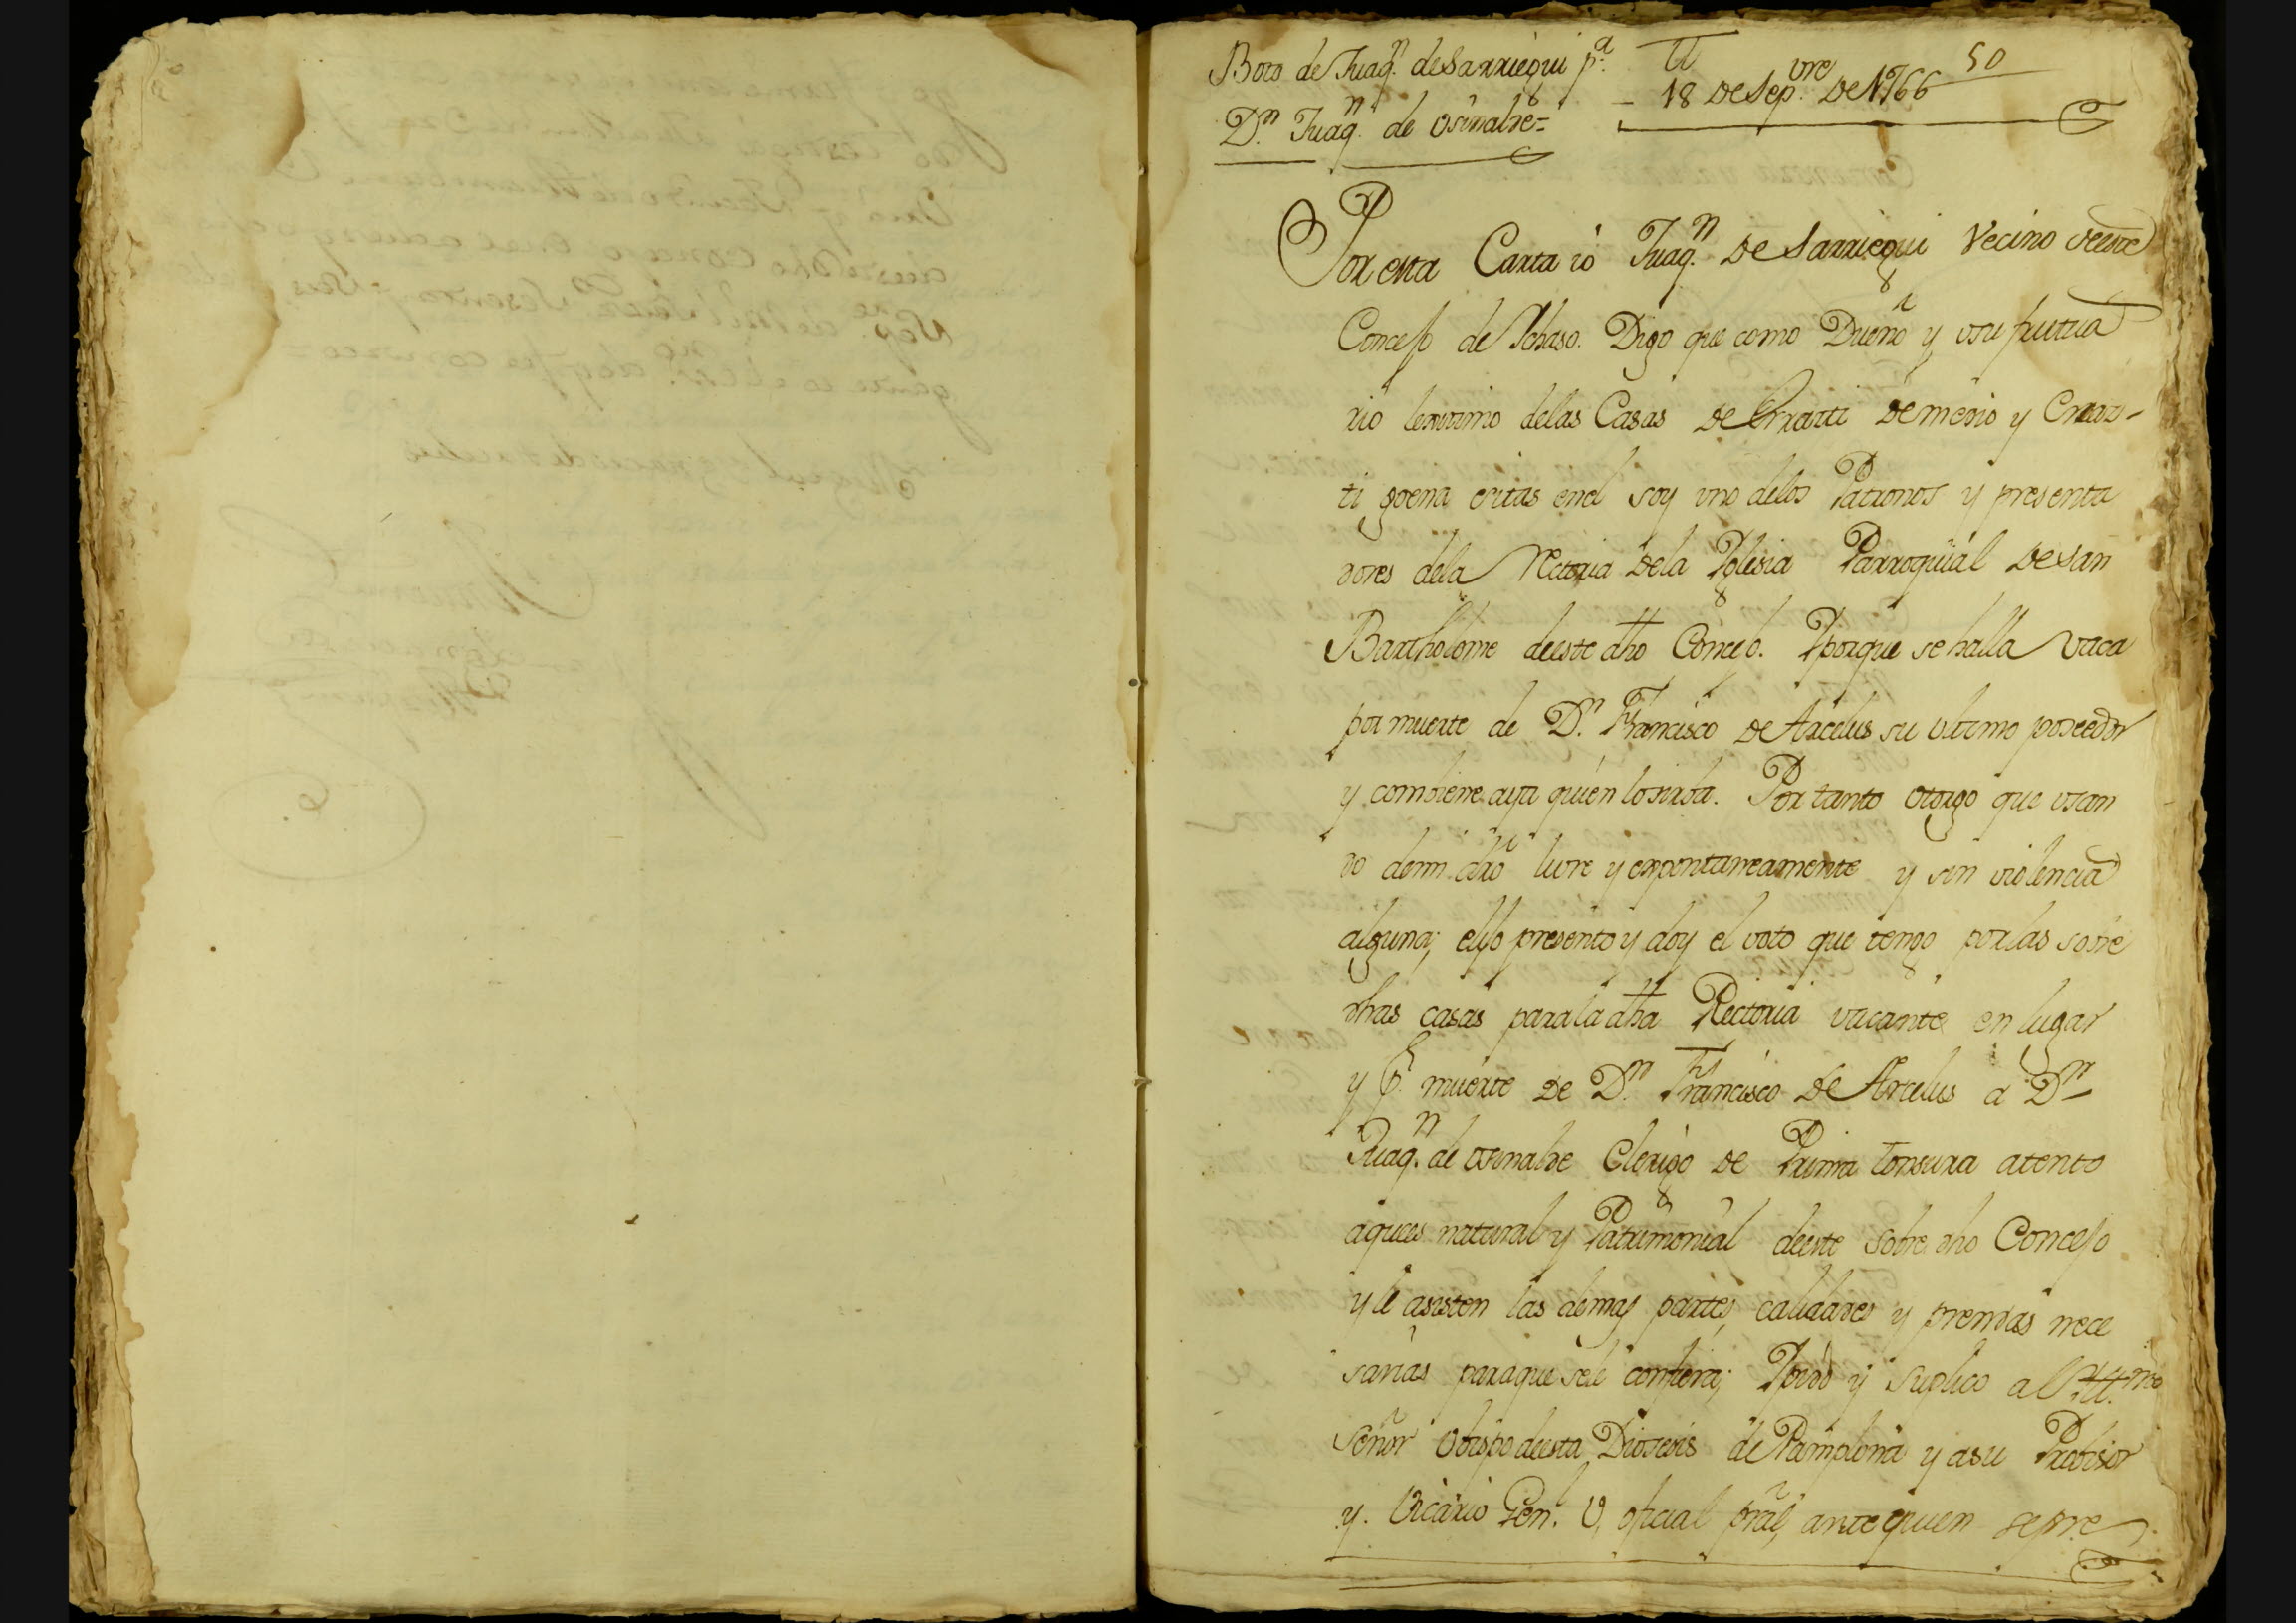 Boto de Juaqn. de Sarriegui pa.
Dn. Juaqn. de Osinalde=
50
18 de Sepvre. de 1766
Por esta Carta io Juaqn. de Sarriegui Vecino deeste
Concejo de Ichaso. Digo que como Dueño y usufrutua
rio lexitimo delas Casas de Errarti demedio y Erraz-
ti goena csitas enel soy uno delos Patronos y presenta
dores dela Rectoria dela Iglesia Parroquial de san
Bartholome deeste dho Concejo. Yporque se halla vaca
por muerte de Dn. Francisco de Arcelus su ultimo poseedor
y combiene aya quien lo sirba. Por tanto otorgo que usan
do demi dro livre y espontaneamente y sin violencia
alguna; elijo presento y doy el voto que tengo porlas sobre
dhas casas parala dha Rectoria vacante en lugar
y Pr. muerte de Dn. Francisco de Arcelus a Dn
Juaqn. de Osinalde Clerigo de Prima tonsura atento
aquees natural y Patrimonial deeste sobre dho Concejo
y le asisten las demas partes, calidades y prendas nece
sarias paraque sele confiera; Ypido y suplico al Illmo.
señor Obispo deesta Diosesis de Pamplona y asu Probisor
y. Vicario Genl. U, oficial pral, ante quien sepre